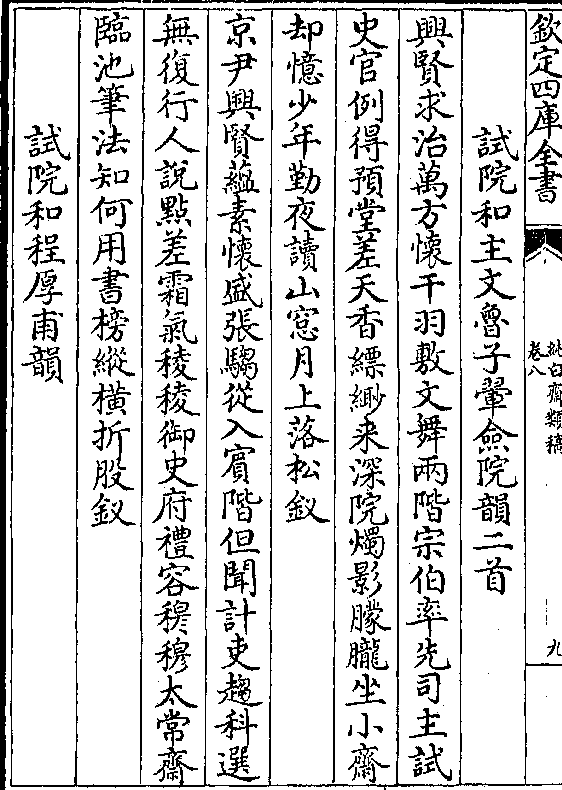 欽定四庫全書
純白齋類稿
卷八
九
試院和主文魯子翬僉院韻二首
興賢求治萬方懷干羽敷文舞兩階宗伯率先司主試
史官例得預堂差天香縹緲来深院燭影朦朧坐小齋
却憶少年勤夜讀山窓月上落松釵
京尹興賢藴素懷盛張騶從入賔階但聞計吏趨科選
無復行人說點差霜氣稜稜御史府禮容穆穆太常齋
臨池筆法知何用書榜縱橫折股釵
試院和程厚甫韻